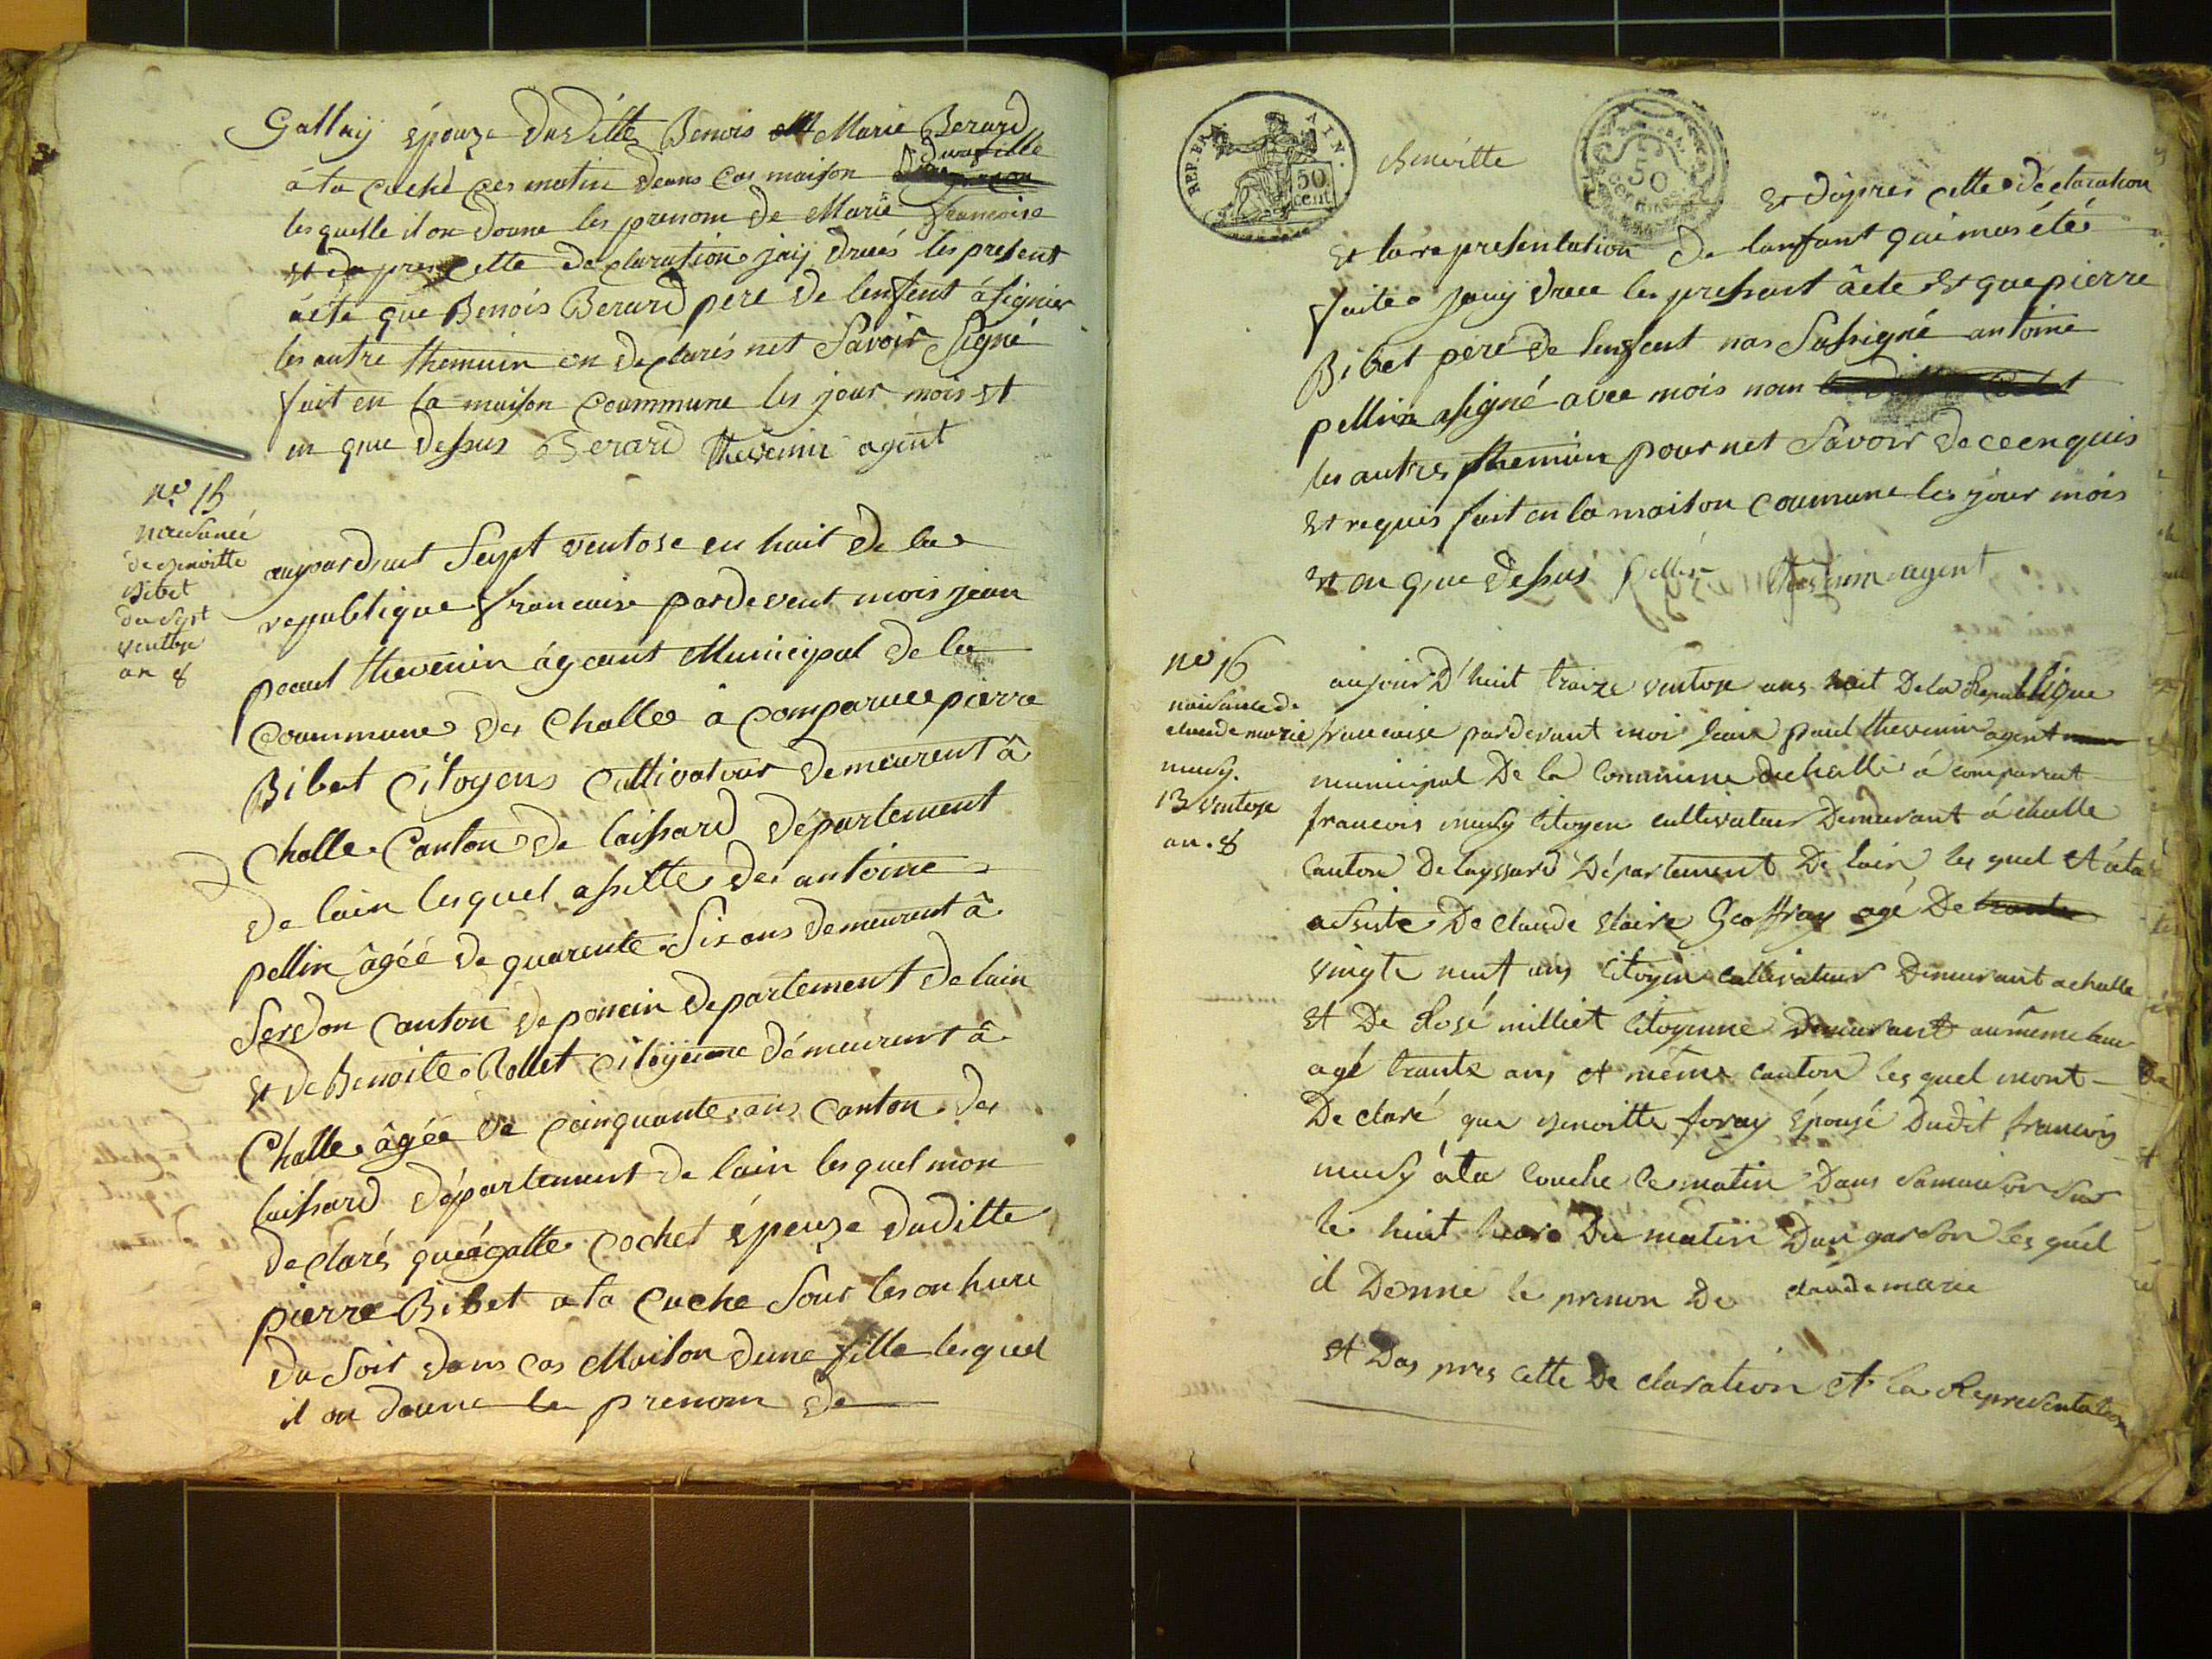 Gallay épouze dudille Benois Marie Berard
à la cuché ces matin deans cas maison dune fille
les quelle il on doune les prenom de Marie francoise
et da pres cette declaration jaij drués les present
acte que Benois Berard pere de lenfent à signier
les autre themuin on declarés net savoir signé
fait en la maison coummune les jour mois et
en que dessus Berard thevenin agent
no. 15
naisance
de benoitte
Bibet
du sept
ventose
an 8
aujourdhut sept ventose en huit de la
republique francaise pardevent mois jean
paul thevenin ageant Municipal de la
coummune des Challe à comparuee pierre
Bibet citoyens cultivatour demeurent à
Challe Canton de laissard département
de lain lesquel asitte des antoine
pellin âgéé de quarente six ans demeurent à
Serdon canton de poncin departement de lain
et de Benoite Rollet citoyenne démeurent à
Challe âgée de cainquante ans canton des
laissard département de lain lesquel mon
declarés queagatte cochet épeuze duditte
pierre Bibet a la cuche sour les on hure
du soir dans cas Maison dune fille lesquel
il on doune le prenom de
REP. FRA. AIN.
50 cent
benoitte
50
et dapres cette declaration
et la representation de lanfant qui mas été
faite jauy druee les pressant àcte et que pierre
Bibet peré de lenfent nas sussigné antoine
pellin asigné avec mois nom
les autres themuin pour net savoir de ce enquis
et requis fait en la maison coumune les jour mois
et an que dessus pellin thevenin agent
no 16
naisance de
claude marie
musy.
13 ventose
an. 8
aujour D'huit traize ventose ans huit De la Republique
francaise pardevant moi Jean paul thevenin agent
municipal De la Commune de challe à comparut
francois musy Citoyen cultivateur Demeurant à challe
Canton de layssard Département De lain les quel
assisté De claude claire Geoffray agé De
vingte neuf ans Citoyen Cultivateur Demeurant a challe
et De Rosé milliet Citoyenne Demeurant au même lieu
agé trante ans et même canton les quel mont
Declaré que benoitte foray Épousé Dudit francois
musy à la couche ce matin Dans sa maison sur
le huit heure Du matin Dun garson les quel
il Donné le prenon De claude marie
et Das pres cette De claration et la Representation